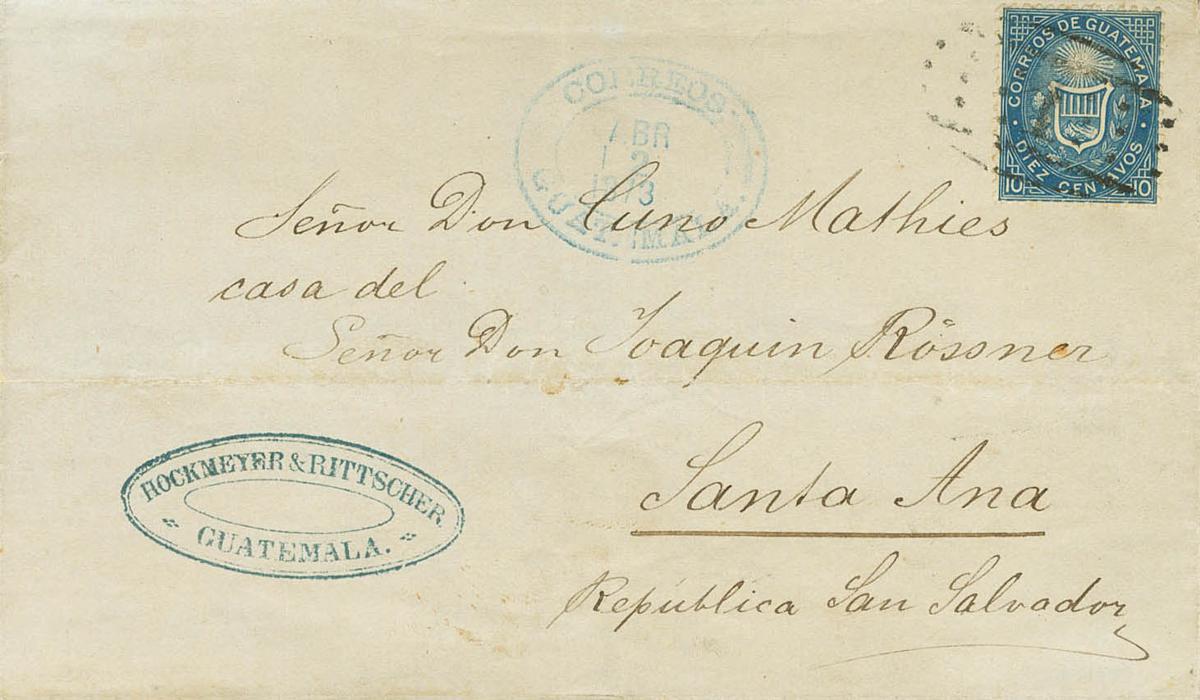 CORREOS DE GUATEMALA
DIEZ CENTAVOS
10 10
CORREOS
ABR
2
1873
GUATEMALA.
Señor Don Cuno Mathies
casa del
Señor Don Joaquin Rössner
Santa Ana
República San Salvador
HOCKMEYER & RITTSCHER
GUATEMALA.